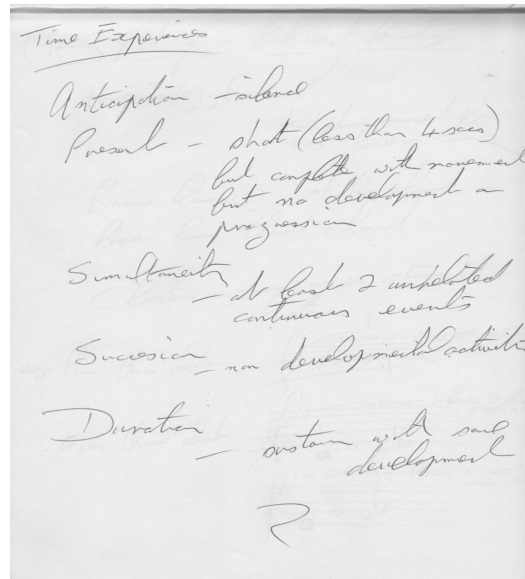 Time Experiences
Anticipation - silence
Present - short (less than 4 secs)
but complete with movement
but no development or
progression
Simultaneity
- at least 2 unrelated
continuous events
Succession
- non developmental activities
Duration
- sustain with some
development